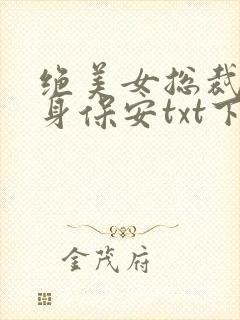 绝美女总裁
身保安txt下
金茂府